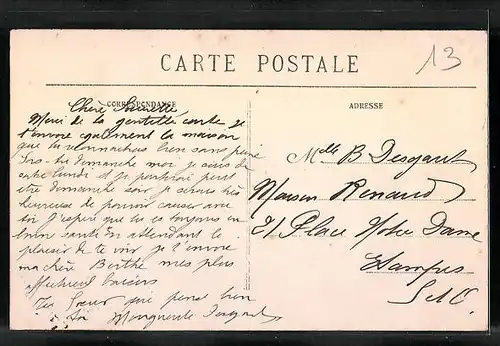 CARTE POSTALE
13
CORRESPONDANCE
ADRESSE
Chère
Merci de la gentille carte je
t'envoie également la maison
que tu reconnaitras bien sans peine
dimanche moi je suis de
lundi et je
être dimanche soir je serais très
heureuse de pouvoir causer avec
toi J'espère que tu es toujours en
bonne santé En attendant le
plaisir de te voir je t'envoie
ma chère Berthe mes plus
affectueux baisers
Ta Sœur qui pense bien
à toi Marguerite
Mdlle B.
Maison Renaud
21 Place Notre Dame
Etampes
S et O.